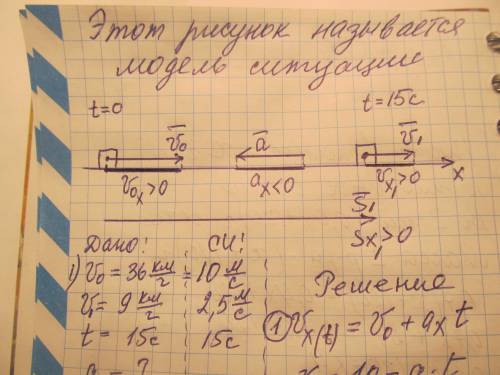 Этот рисунок называется
модель ситуации
t=0
t=15с
v̅₀
a̅
v̅₁
v₀ₓ>0
aₓ<0
vₓ₁>0
x
S̅₁
Sx₁>0
Дано:
СИ:
1) v₀ = 36 км/г = 10 м/с
v₁ = 9 км/г
2,5 м/с
t = 15с
15с
a = ?
Решение
① Vₓ(t) = v₀ + aₓ t